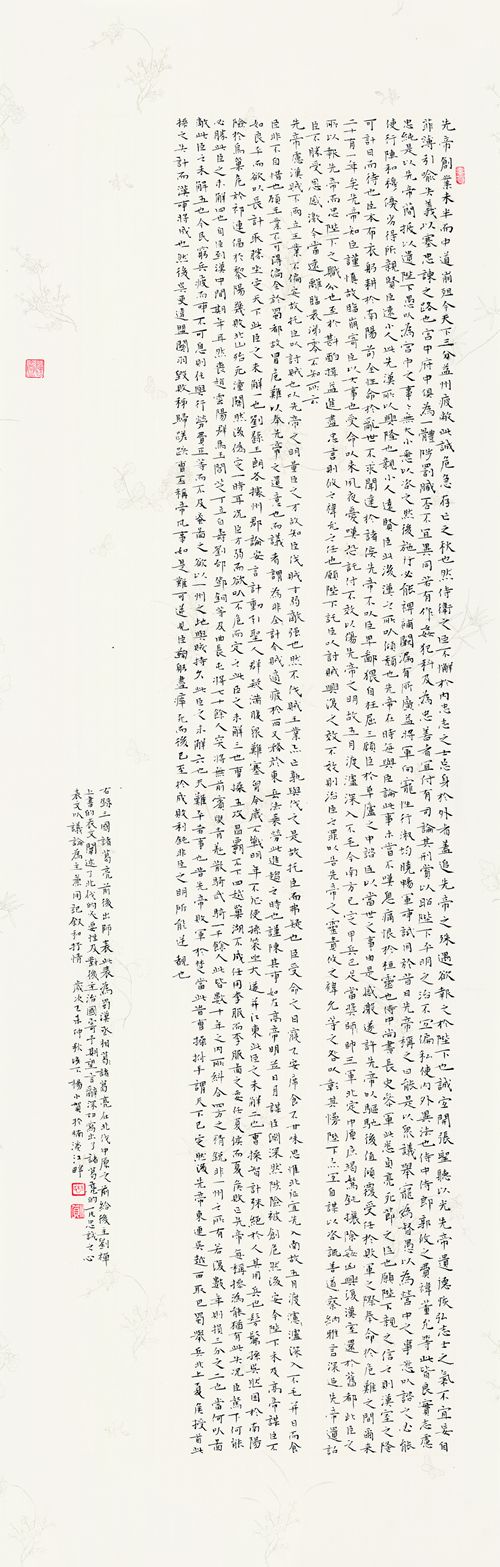 先帝創業未半而中道崩殂今天下三分益州疲敝此誠危急存亡之秋也然侍衛之臣不懈於內忠志之士忘身於外者蓋追先帝之殊遇欲報之於陛下也誠宜開張聖聽以光先帝遺德恢弘志士之氣不宜妄自
菲薄引喻失義以塞忠諫之路也宮中府中俱為一體陟罰臧否不宜異同若有作姦犯科及為忠善者宜付有司論其刑賞以昭陛下平明之治不宜偏私使內外異法也侍中侍郎郭攸之費禕董允等此皆良實志慮
忠純是以先帝簡拔以遺陛下愚以為宮中之事事無大小悉以咨之然後施行必能裨補闕漏有所廣益將軍向寵性行淑均曉暢軍事試用於昔日先帝稱之曰能是以眾議舉寵為督愚以為營中之事悉以諮之必能
使行陣和穆優劣得所親賢臣遠小人此先漢所以興隆也親小人遠賢臣此後漢之所以傾頹也先帝在時每與臣論此事未嘗不嘆息痛恨於桓靈也侍中尚書長史參軍此悉貞亮死節之臣也願陛下親之信之則漢室之隆
可計日而待也臣本布衣躬耕於南陽苟全性命於亂世不求聞達於諸侯先帝不以臣卑鄙猥自枉屈三顧臣於草廬之中諮臣以當世之事由是感激遂許先帝以驅馳後值傾覆受任於敗軍之際奉命於危難之間爾來
二十有一年矣先帝知臣謹慎故臨崩寄臣以大事也受命以來夙夜憂嘆恐託付不效以傷先帝之明故五月渡瀘深入不毛今南方已定甲兵已足當獎帥三軍北定中原庶竭駑鈍攘除姦凶興復漢室還於舊都此臣之
所以報先帝而忠陛下之職分也至於斟酌損益進盡忠言則攸之禕允之任也願陛下託臣以討賊興復之效不效則治臣之罪以告先帝之靈責攸之禕允等之咎以彰其慢陛下亦宜自謀以咨諏善道察納雅言深追先帝遺詔
臣不勝受恩感激今當遠離臨表涕零不知所云
先帝慮漢賊不兩立王業不偏安故託臣以討賊也以先帝之明量臣之才故知臣伐賊才弱敵強也然不伐賊王業亦亡惟坐待亡孰與伐之是故託臣而弗疑也臣受命之日寢不安席食不甘味思惟北征宜先入南故五月渡瀘深入不毛并日而食
臣非不自惜也顧王業不可得偏全於蜀都故冒危難以奉先帝之遺意也而議者謂為非計今賊適疲於西又務於東兵法乘勞此進趨之時也謹陳其事如左高帝明並日月謀臣淵深然陟險被創危然後安今陛下未及高帝謀臣不
如良平而欲以長計取勝坐定天下此臣之未解一也劉繇王朗各據州郡論安言計動引聖人群疑滿腹眾難塞胸今歲不戰明年不征使孫策坐大遂并江東此臣之未解二也曹操智計殊絕於人其用兵也髣髴孫吳然困於南陽
險於烏巢危於祁連偪於黎陽幾敗北山殆死潼關然後偽定一時耳況臣才弱而欲以不危而定之此臣之未解三也曹操五攻昌霸不下四越巢湖不成任用李服而李服圖之委任夏侯而夏侯敗亡先帝每稱操為能猶有此失況臣駑下何能
必勝此臣之未解四也自臣到漢中中間期年耳然喪趙雲陽群馬玉閻芝丁立白壽劉郃鄧銅等及曲長屯將七十餘人突將無前賨叟青羌散騎武騎一千餘人此皆數十年之內所糾合四方之精銳非一州之所有若復數年則損三分之二也當何以圖
敵此臣之未解五也今民窮兵疲而事不可息事不可息則住與行勞費正等而不及蚤圖之欲以一州之地與賊持久此臣之未解六也夫難平者事也昔先帝敗軍於楚當此時曹操拊手謂天下已定然後先帝東連吳越西取巴蜀舉兵北征夏侯授首此
操之失計而漢事將成也然後吳更違盟關羽毀敗秭歸蹉跌曹丕稱帝凡事如是難可逆見臣鞠躬盡瘁死而後已至於成敗利鈍非臣之明所能逆覩也
右錄三國諸葛亮前後出師表此表為蜀漢丞相諸葛亮在北伐中原之前給後主劉禪
上書的表文闡述了北伐的必要性及對後主治國寄予期望言辭深切寫出了諸葛亮的一片忠誠之心
表文以議論為主兼用記敘和抒情 歲次乙未仲秋